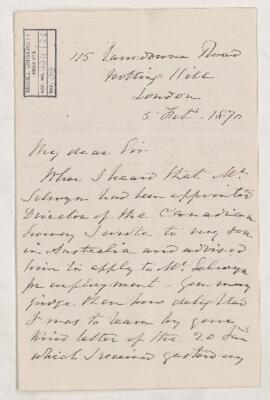 McGILL UNIVERSITY
ARCHIVES
115 Lansdowne Road
Notting Hill
London
5 Feb. 1870
My dear Sir
When I heard that Mr
Selwyn had been appointed
Director of the Canadian
Survey I wrote to my son
in Australia and advised
him to apply to Mr. Selwyn
for employment. You may
judge then how delighted
I was to learn by your
kind letter of the 20 Jan
which I received yesterday